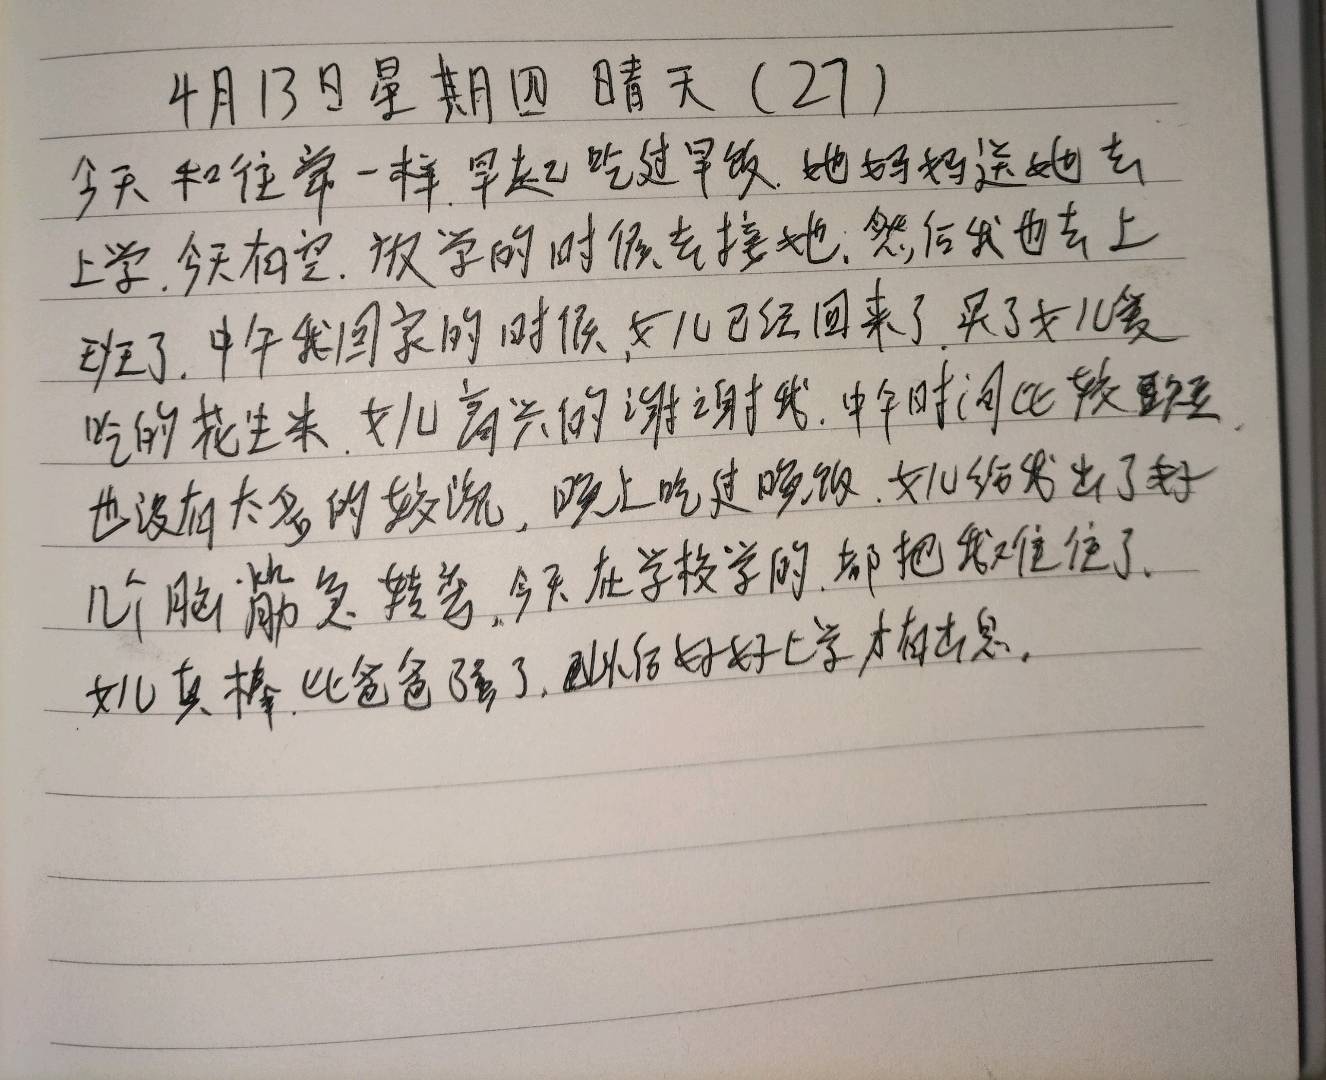 4月13日星期四 晴天(27)
今天和往常一样.早起吃过早饭.她妈妈送她去
上学.今天有空.放学的时候去接她.然后我也去上
班了.中午我回家的时候,女儿已经回来了.买了女儿爱
吃的花生米.女儿高兴的谢谢我.中午时间比较短.
也没有太多的较流,晚上吃过晚饭.女儿给我出了好
几个脑筋急转弯.今天在学校学的.都把我难住了.
女儿真棒.比爸爸强了.以后好好上学才有出息.